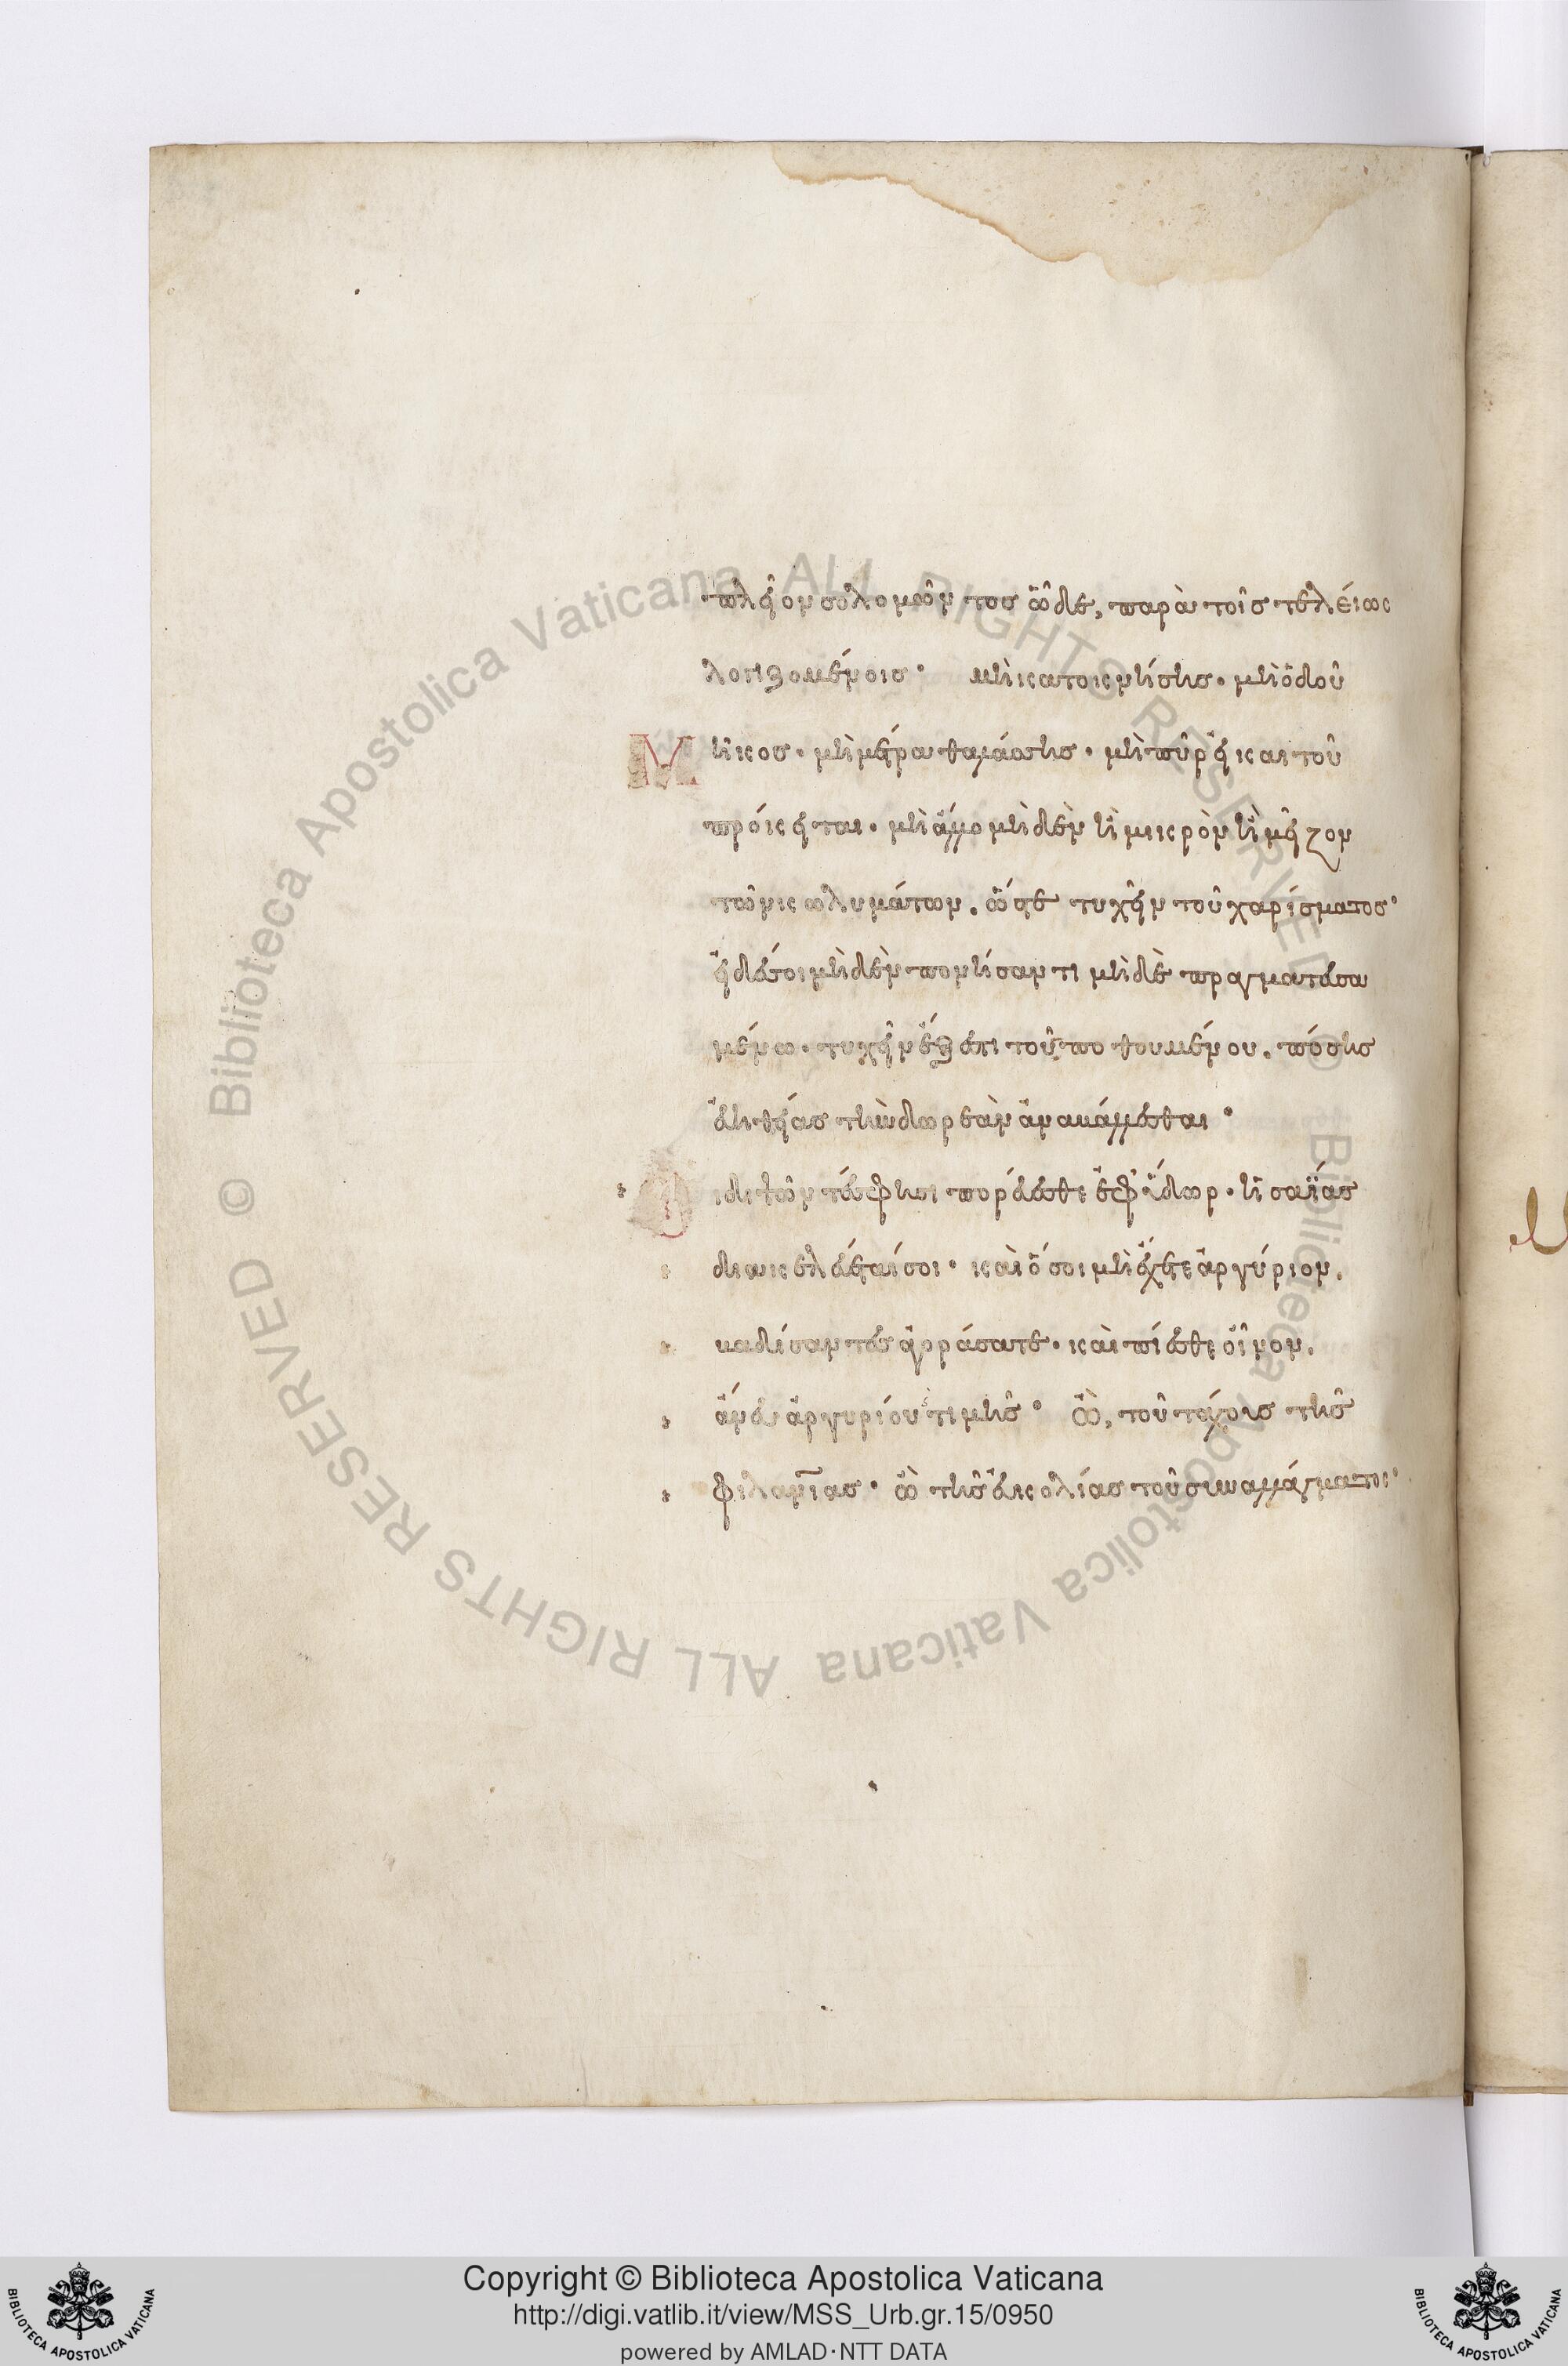 πλεῖον σολομῶντος ὧδε, παρὰ τοῖς τελείως
λογιζομένοις· μὴ κατοκνήσῃς· μὴ ὁδοῦ
μῆκος· μὴ μέτρα θαλάσσης· μὴ πῦρ εἰ καὶ τοῦ
πρόκειται· μὴ ἄλλο μηδὲν ἢ μικρὸν ἢ μεῖζον
τῶν κωλυμάτων, ὥστε τυχεῖν τοῦ χαρίσματος·
εἰ δέ σοι μηδὲν πονήσαντι μηδὲ πραγματευσα
μένω· τυχεῖν ἔξεστι τοῦ ποθουμένου,
εὐηθείας τὴν δωρεὰν ἀναβάλλεσθαι·
Οἱ διψῶντες πορεύεσθε ἐφ' ὕδωρ· ἡσαΐας
διακελεύεταί σοι· καὶ ὅσοι μὴ ἔχετε ἀργύριον,
βαδίσαντες ἀγοράσατε· καὶ πίεσθε οἶνον,
ἄνευ ἀργυρίου τιμῆς· ὢ, τοῦ τάχους τῆς
φιλανίας· ὢ τῆς εὐκολίας τοῦ συναλλάγματος·
Copyright © Biblioteca Apostolica Vaticana
http://digi.vatlib.it/view/MSS_Urb.gr.15/0950
powered by AMLAD·NTT DATA
BIBLIOTECA APOSTOLICA VATICANA
BIBLIOTECA APOSTOLICA VATICANA
© Biblioteca Apostolica Vaticana ALL RIGHTS RESERVED
© Biblioteca Apostolica Vaticana ALL RIGHTS RESERVED